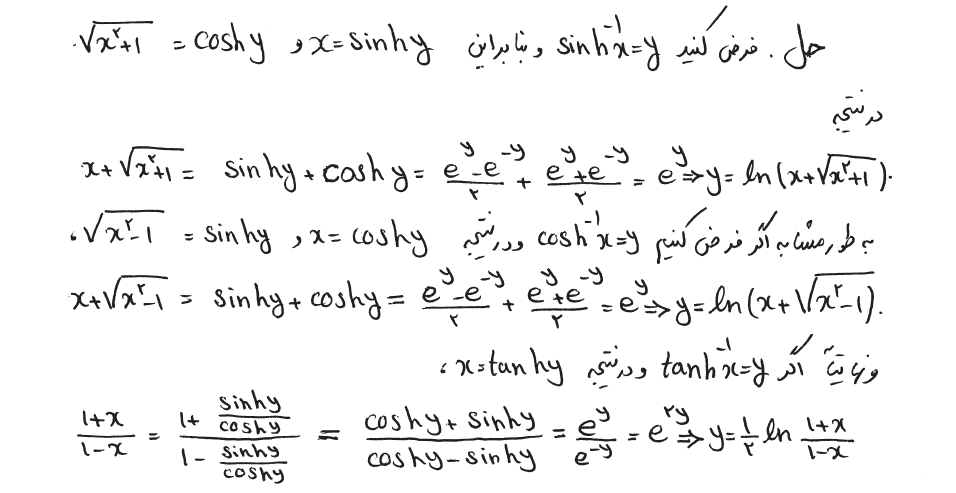 حل . فرض کنید sinh⁻¹x=y و بنابراین x=sinhy و √(x²+1) = coshy.
در نتیجه
x+√(x²+1) = sinhy + coshy = (e^y-e^-y)/۲ + (e^y+e^-y)/۲ = e^y ⇒ y = ln(x+√(x²+1)).
به طور مشابه اگر فرض کنیم cosh⁻¹x=y و در نتیجه x=coshy و √(x²-1) = sinhy،
x+√(x²-1) = sinhy + coshy = (e^y-e^-y)/۲ + (e^y+e^-y)/۲ = e^y ⇒ y = ln(x+√(x²-1)).
و نهایتاً اگر tanh⁻¹x=y و در نتیجه x=tanhy،
(1+x)/(1-x) = (1+ sinhy/coshy)/(1- sinhy/coshy) = (coshy+sinhy)/(coshy-sinhy) = e^y/e^-y = e^۲y ⇒ y = ۱/۲ ln (1+x)/(1-x)